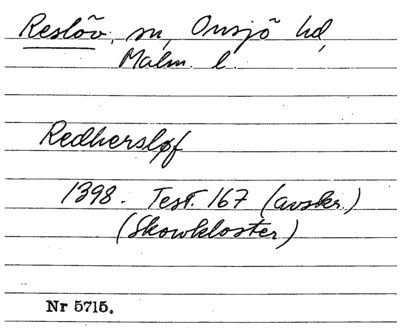 Reslöv, sn, Onsjö hd,
Malm. l.
Redhersløf
1398. Test. 167 (avskr.)
(Skowkloster)
Nr 5715.